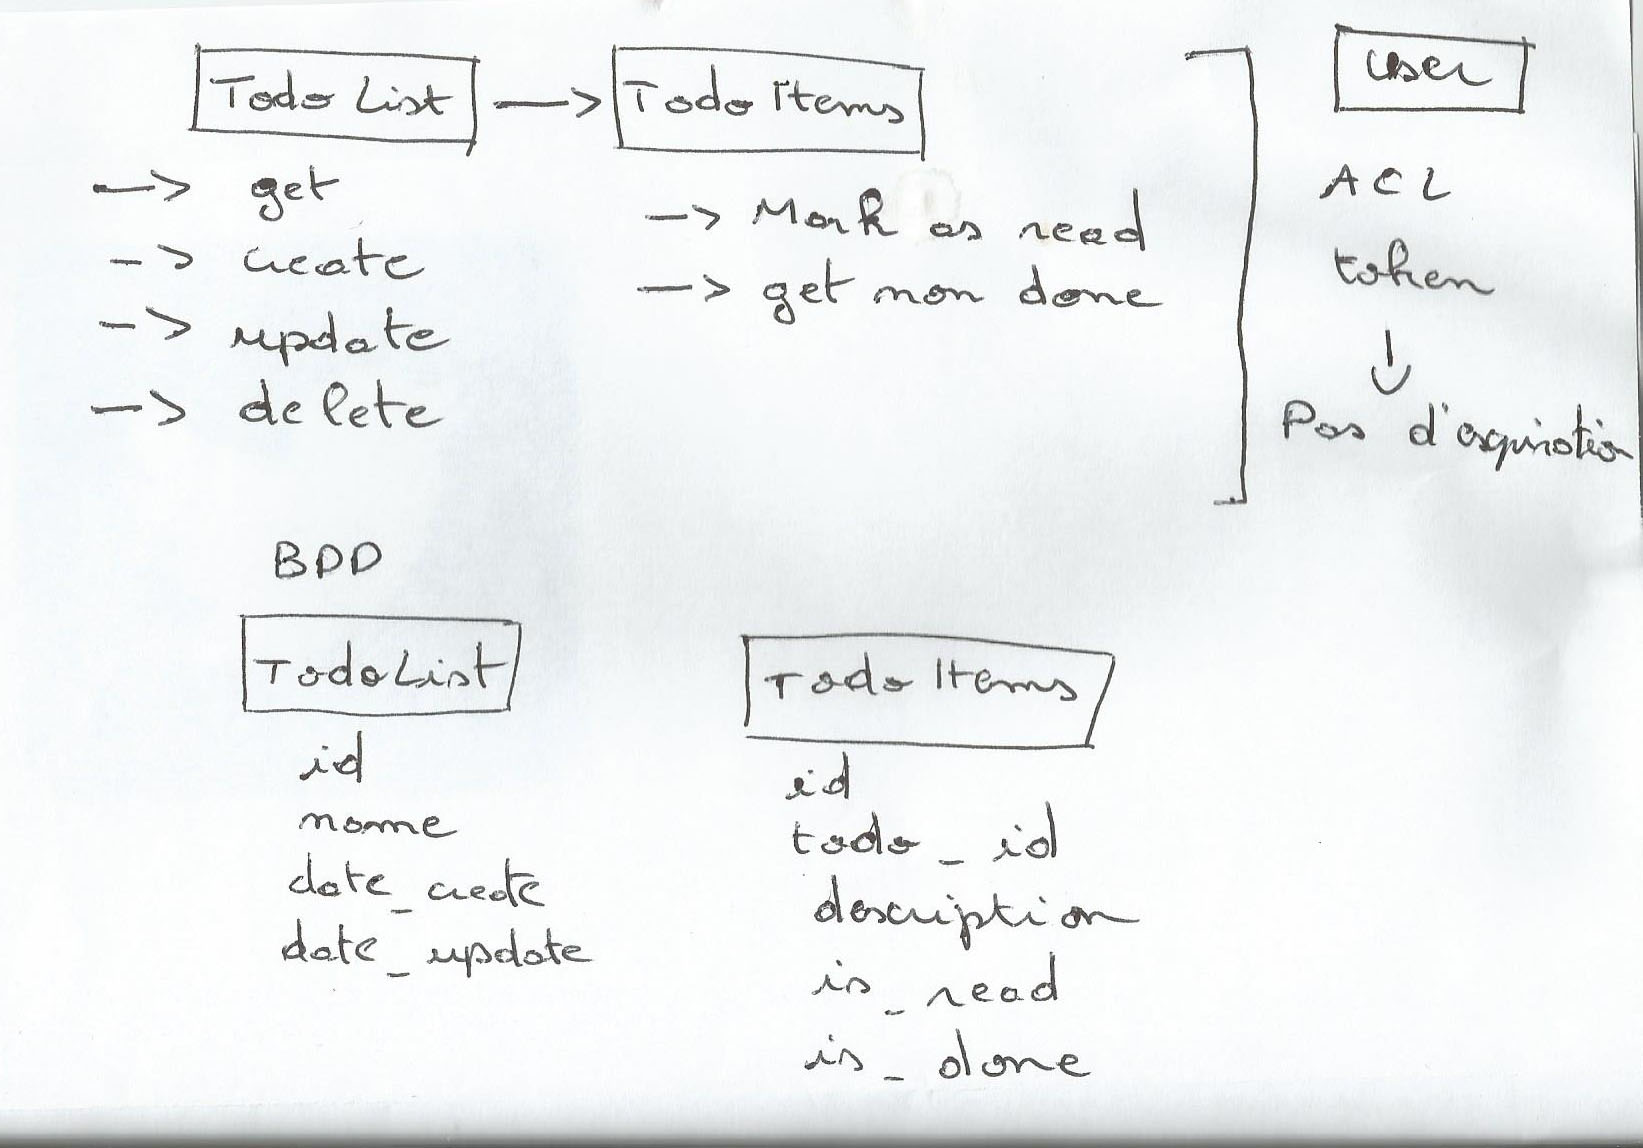 Todo List —> Todo Items
—> get
—> create
—> update
—> delete
—> Mark as read
—> get non done
User
ACL
token
Pas d'expiration
BDD
TodoList
id
name
date_create
date_update
Todo Items
id
todo_id
description
is_read
is_done